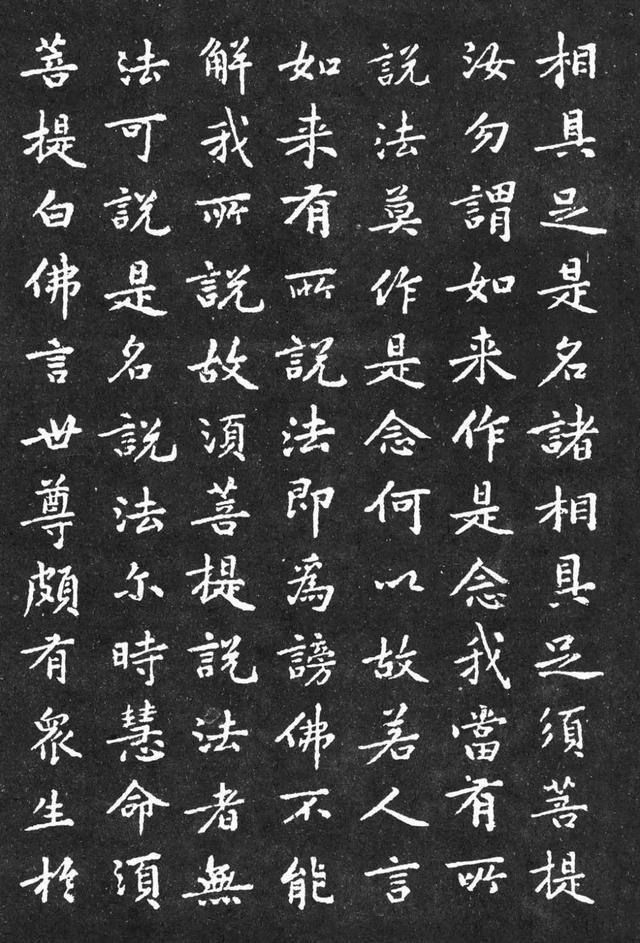 相具足是名諸相具足須菩提
汝勿謂如来作是念我當有所
說法莫作是念何以故若人言
如来有所說法即為謗佛不能
解我所說故須菩提說法者無
法可說是名說法尓時慧命須
菩提白佛言世尊頗有眾生於